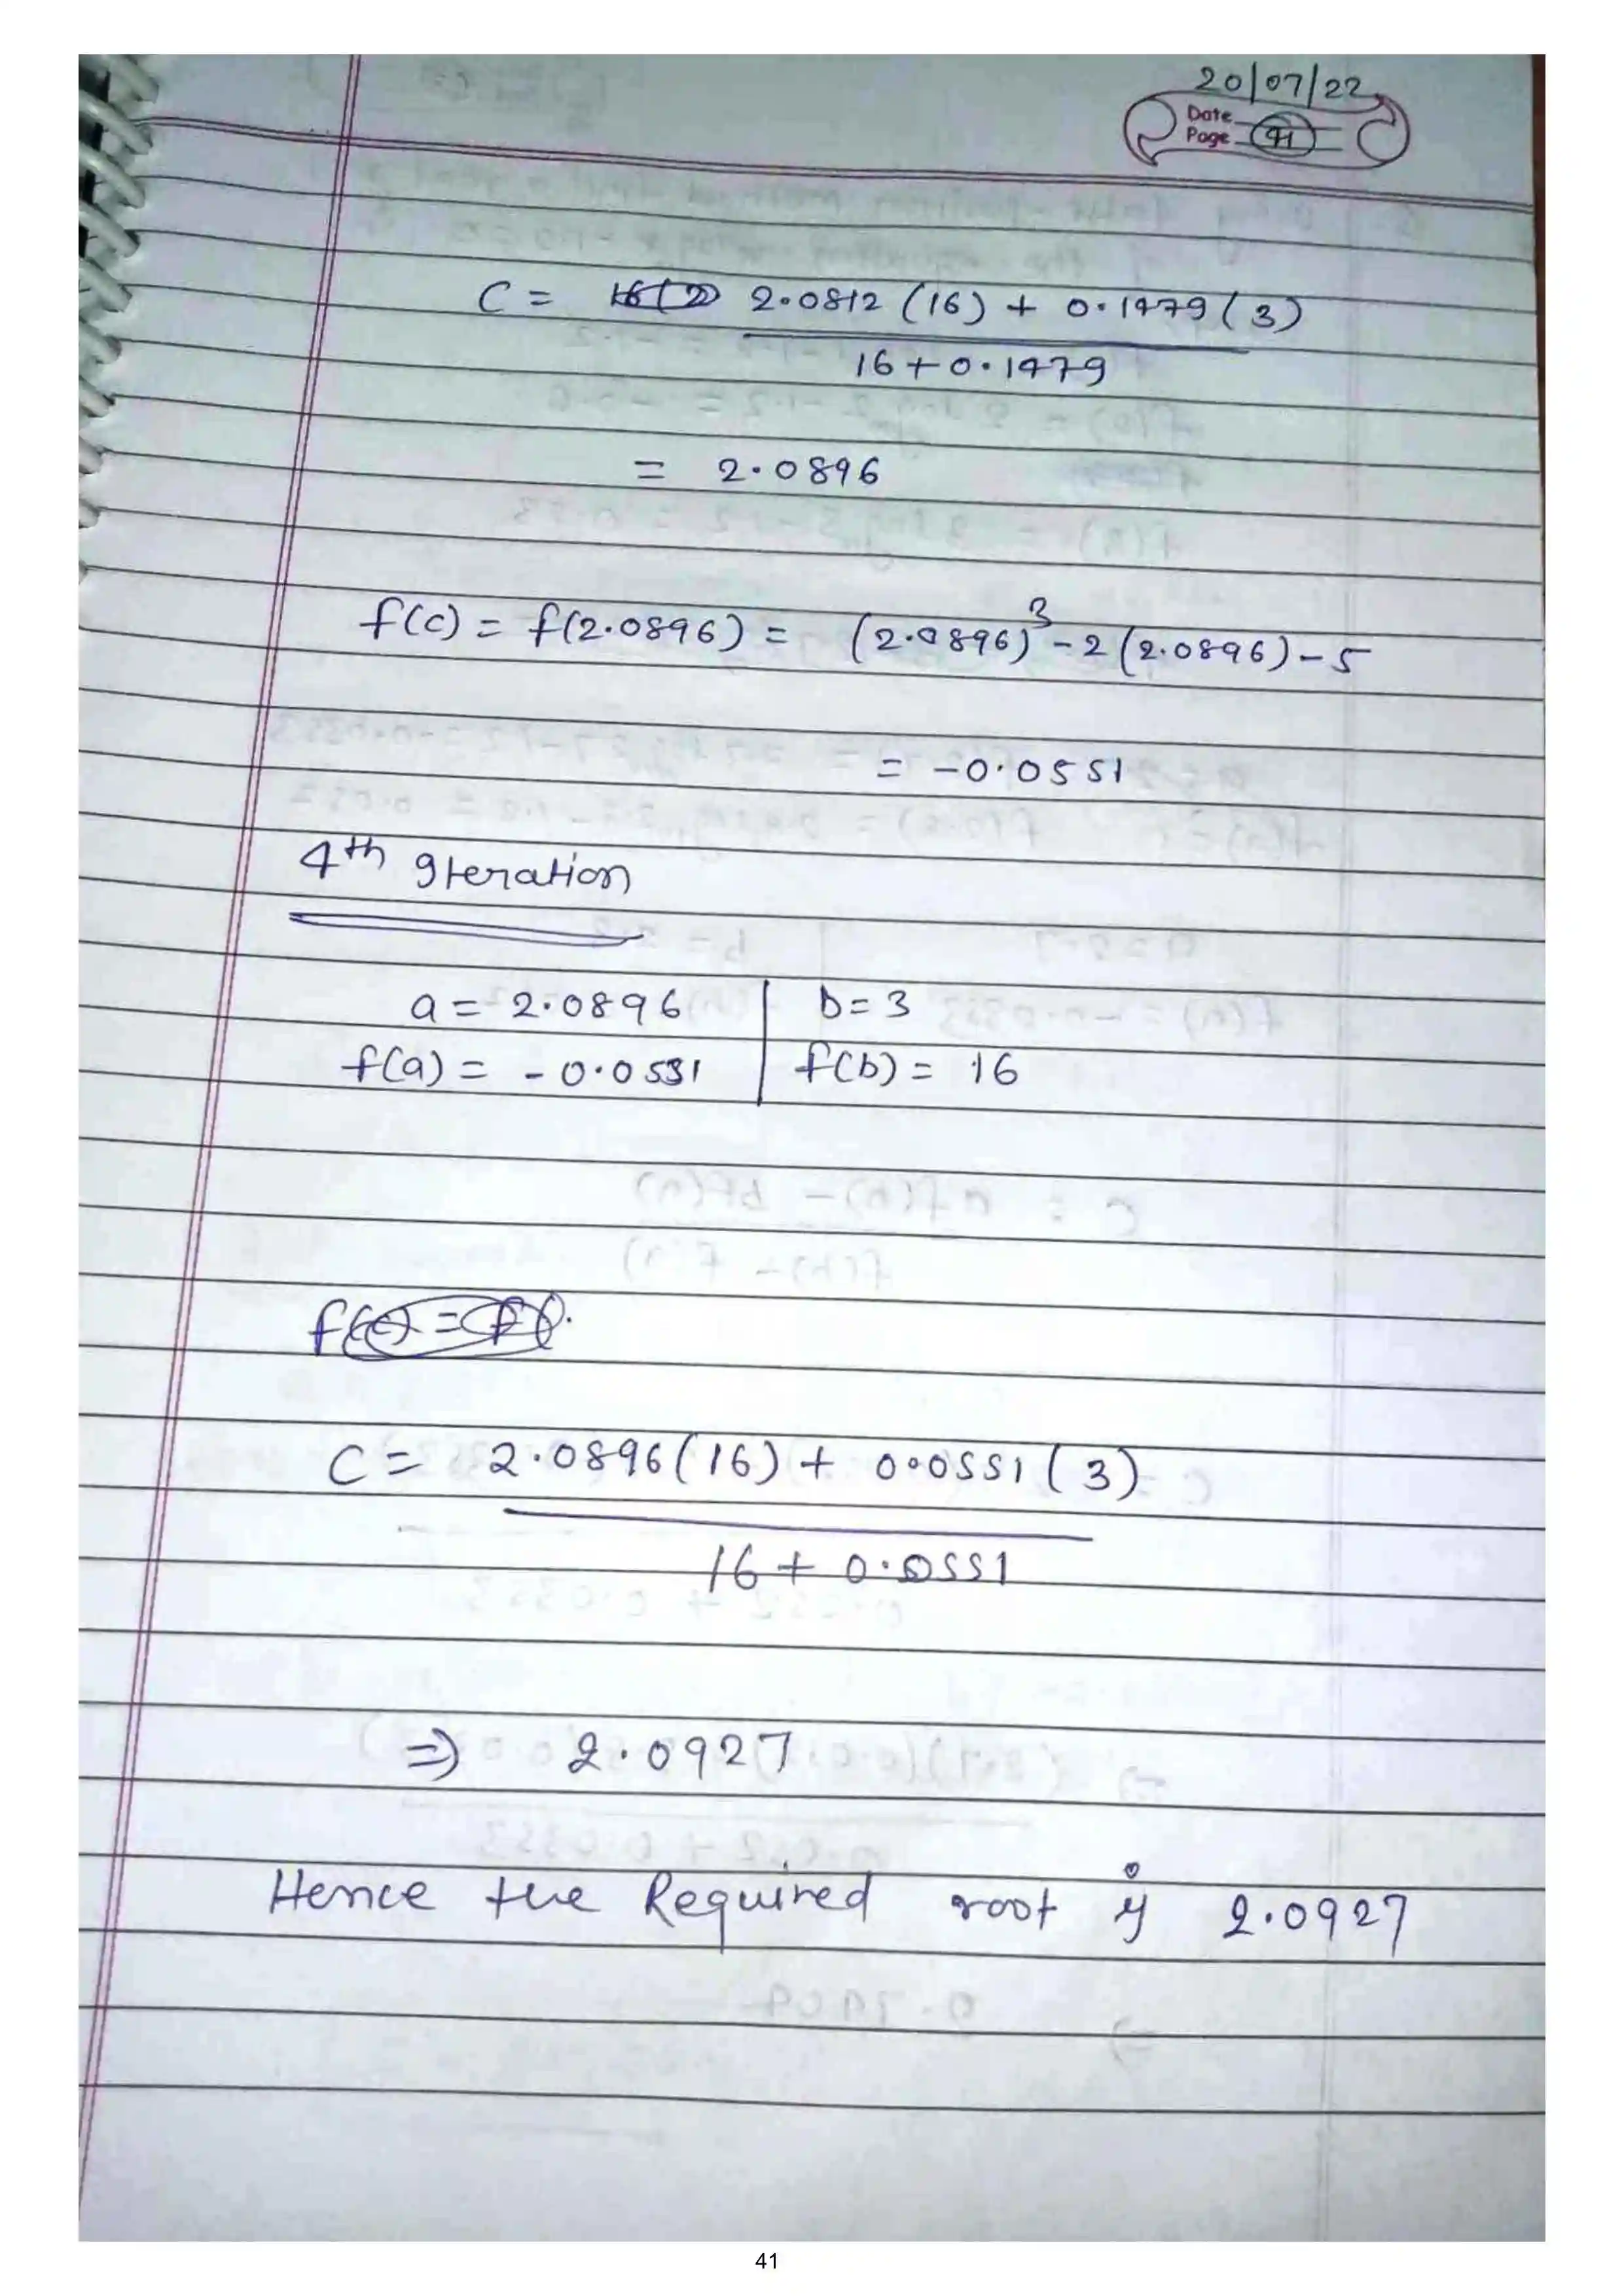 20/07/22
Date
Page 41
C = 2.0812 (16) + 0.1479 (3)
16 + 0.1479
= 2.0896
f(c) = f(2.0896) = (2.0896)³ - 2(2.0896) - 5
= -0.0551
4th Iteration
a = 2.0896 | b = 3
f(a) = -0.0531 | f(b) = 16
C = 2.0896(16) + 0.0551(3)
16 + 0.0551
⇒ 2.0927
Hence the Required root is 2.0927
41